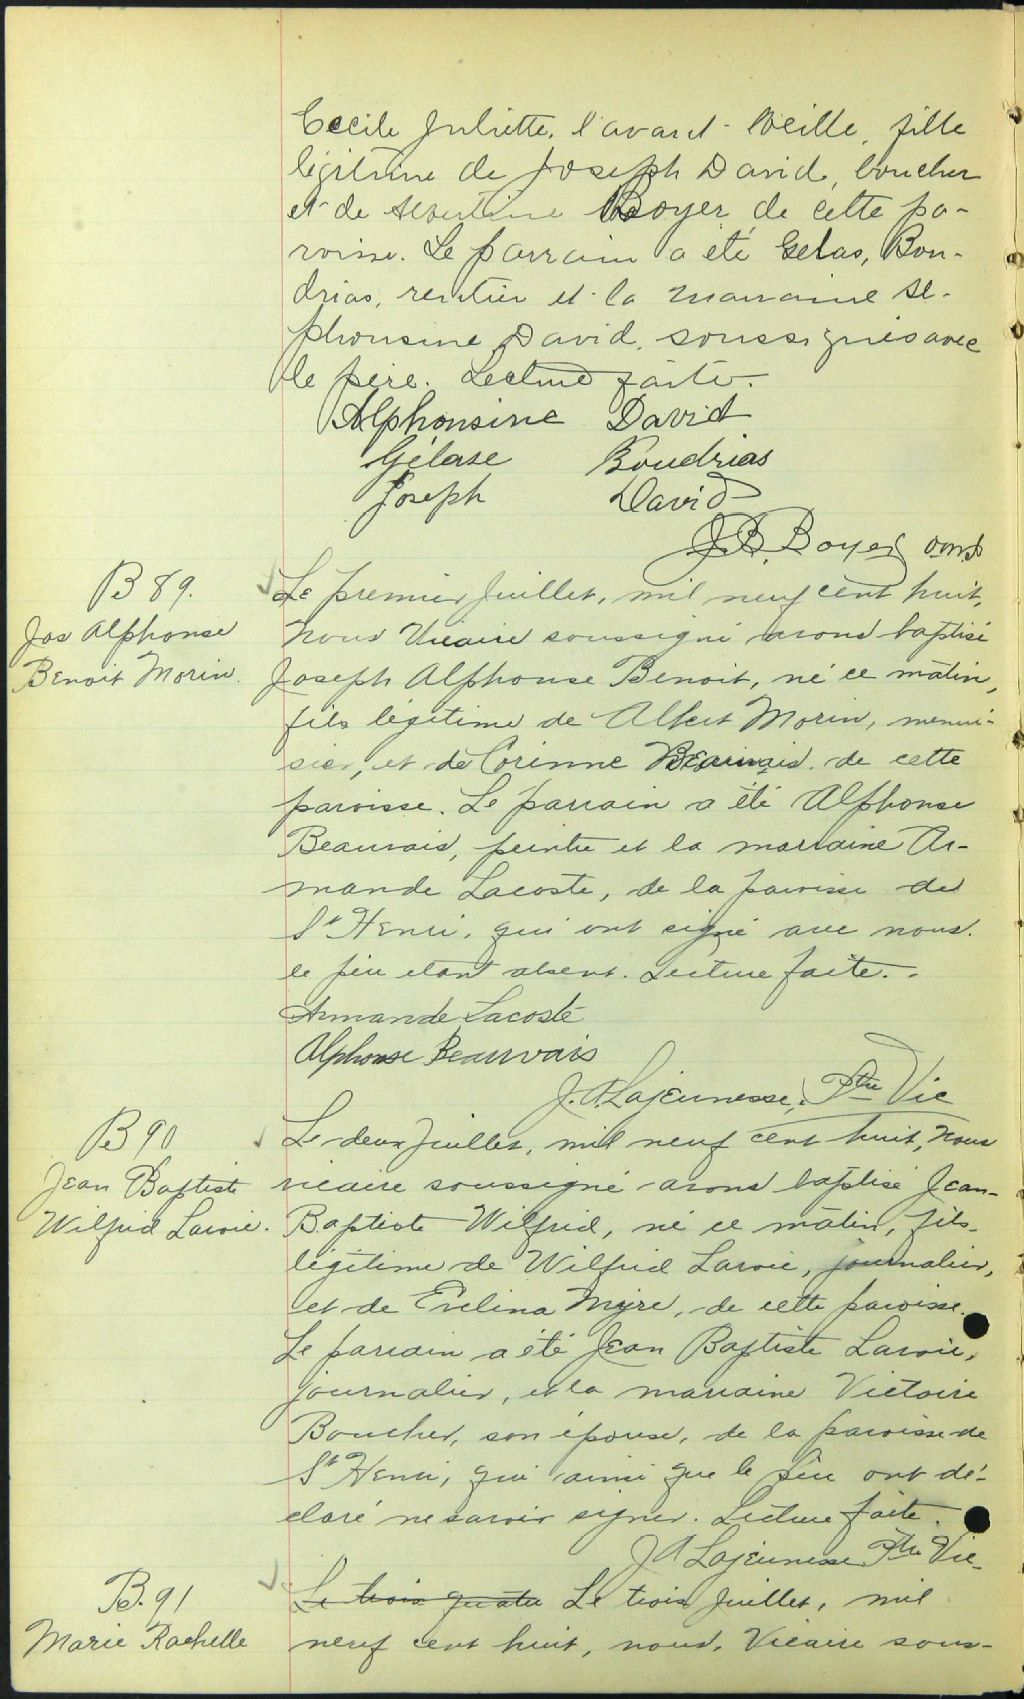 Cecile Juliette, l'avant-veille, fille
légitime de Joseph David, boucher
et de Boyer de cette pa-
roisse. Le parrain a été Gelas, Bou-
drias, rentier et la marraine Al-
phonsine David, soussignés avec
le père. Lecture faite.
Alphonsine David
Gélase Boudrias
Joseph David
J. B. Boyer
B 89.
Jos Alphonse
Benoit Morin.
Le premier Juillet, mil neuf cent huit,
Nous Vicaire soussigné avons baptisé
Joseph Alphonse Benoit, né ce matin,
fils légitime de Albert Morin, menui-
sier, et de Corinne Beauvais, de cette
paroisse. Le parrain a été Alphonse
Beauvais, peintre et la marraine Ar-
mande Lacoste, de la paroisse de
St Henri, qui ont signé avec nous.
le père etant absent. Lecture faite.
Armande Lacoste
Alphonse Beauvais
J. A. Lajeunesse, Ptre Vic
B 90
Jean Baptiste
Wilfrid Lavoie.
Le deux Juillet, mil neuf cent huit, Nous
vicaire soussigné avons baptisé Jean-
Baptiste Wilfrid, né ce matin, fils
légitime de Wilfrid Lavoie, journalier,
et de Evelina Myre, de cette paroisse.
Le parrain a été Jean Baptiste Lavoie,
journalier, et la marraine Victoire
Boucher, son épouse, de la paroisse de
St Henri, qui ainsi que le père ont dé-
claré ne savoir signer. Lecture faite.
J A Lajeunesse Ptre Vic
B. 91
Marie Rachelle
Le trois quatre Le trois Juillet, mil
neuf cent huit, nous, Vicaire sous-